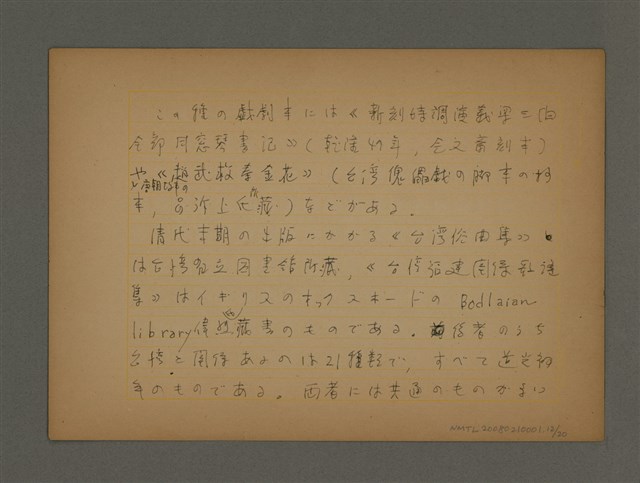 この種の戯劇本には《新刻時調演義梁三伯
全部同窓琴書記》(乾隆49年, 会文斎刻本)
や《趙武救秦金花》(台湾傀儡戯の脚本の抄
本, 呂沂上氏所藏)などがある。
清代末期の出版にかかる《台湾俗曲集》
は台湾省立図書館所藏, 《台湾福建関係歌謡
集》はイギリスのオックスホードの Bodlaian
library 藏書のものである。前者のうち
台湾と関係あるのは21種類で, すべて道光初
年のものである。両者には共通のものがあい
NMTL20080210001.12/20